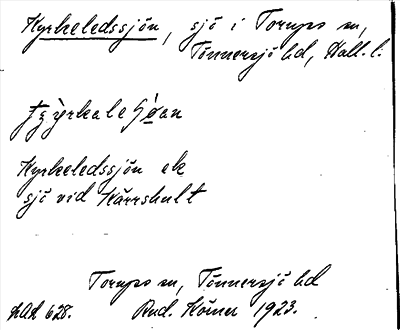 Kyrkeledssjön, sjö i Torups sn,
Tönnersjö hd, Hall. l.
Kyrkeledssjön ek
sjö vid Kärrshult
Torups sn, Tönnersjö hd
628. Rud. Körner 1923.